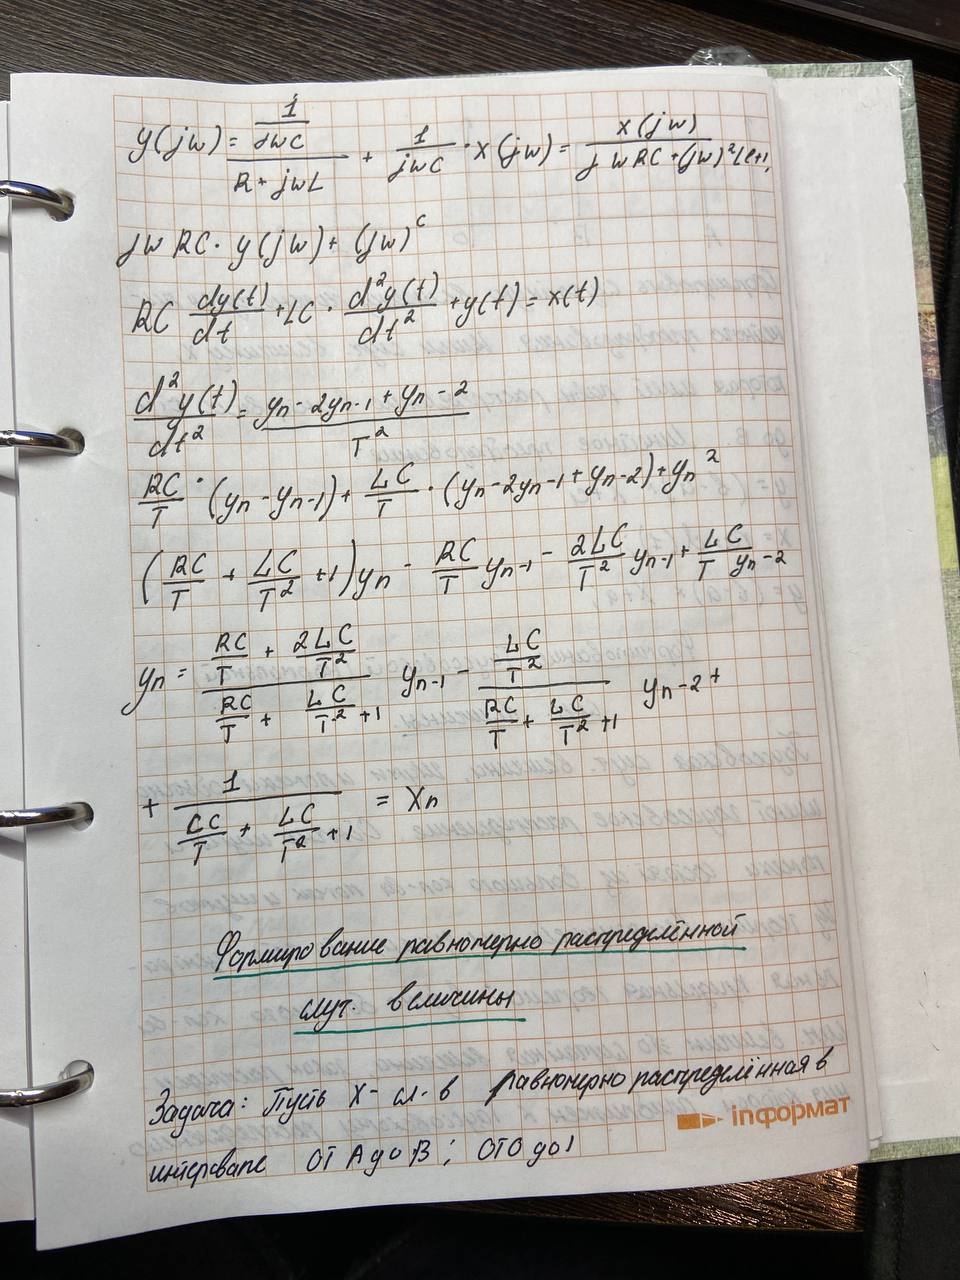 y(jw) = (1/jwC)/(R + jwL) + 1/jwC · x(jw) = x(jw)/(jwRC + (jw)²LC+1)
jw RC · y(jw) + (jw)^c
RC dy(t)/dt + LC · d²y(t)/dt² + y(t) = x(t)
d²y(t)/dt² = (yn - 2yn-1 + yn-2)/T²
RC/T · (yn - yn-1) + LC/T · (yn - 2yn-1 + yn-2) + yn²
(RC/T + LC/T² + 1) yn - RC/T yn-1 - 2LC/T² yn-1 + LC/T yn-2
yn = (RC/T + 2LC/T²)/(RC/T + LC/T² + 1) yn-1 - (LC/T²)/(RC/T + LC/T² + 1) yn-2 +
+ 1/(CC/T + LC/T² + 1) = Xn
Формирование равномерно распределённой
случ. величины
Задача: Пусть X - сл. в равномерно распределённая в
интервале от A до B ; от 0 до 1
inформат